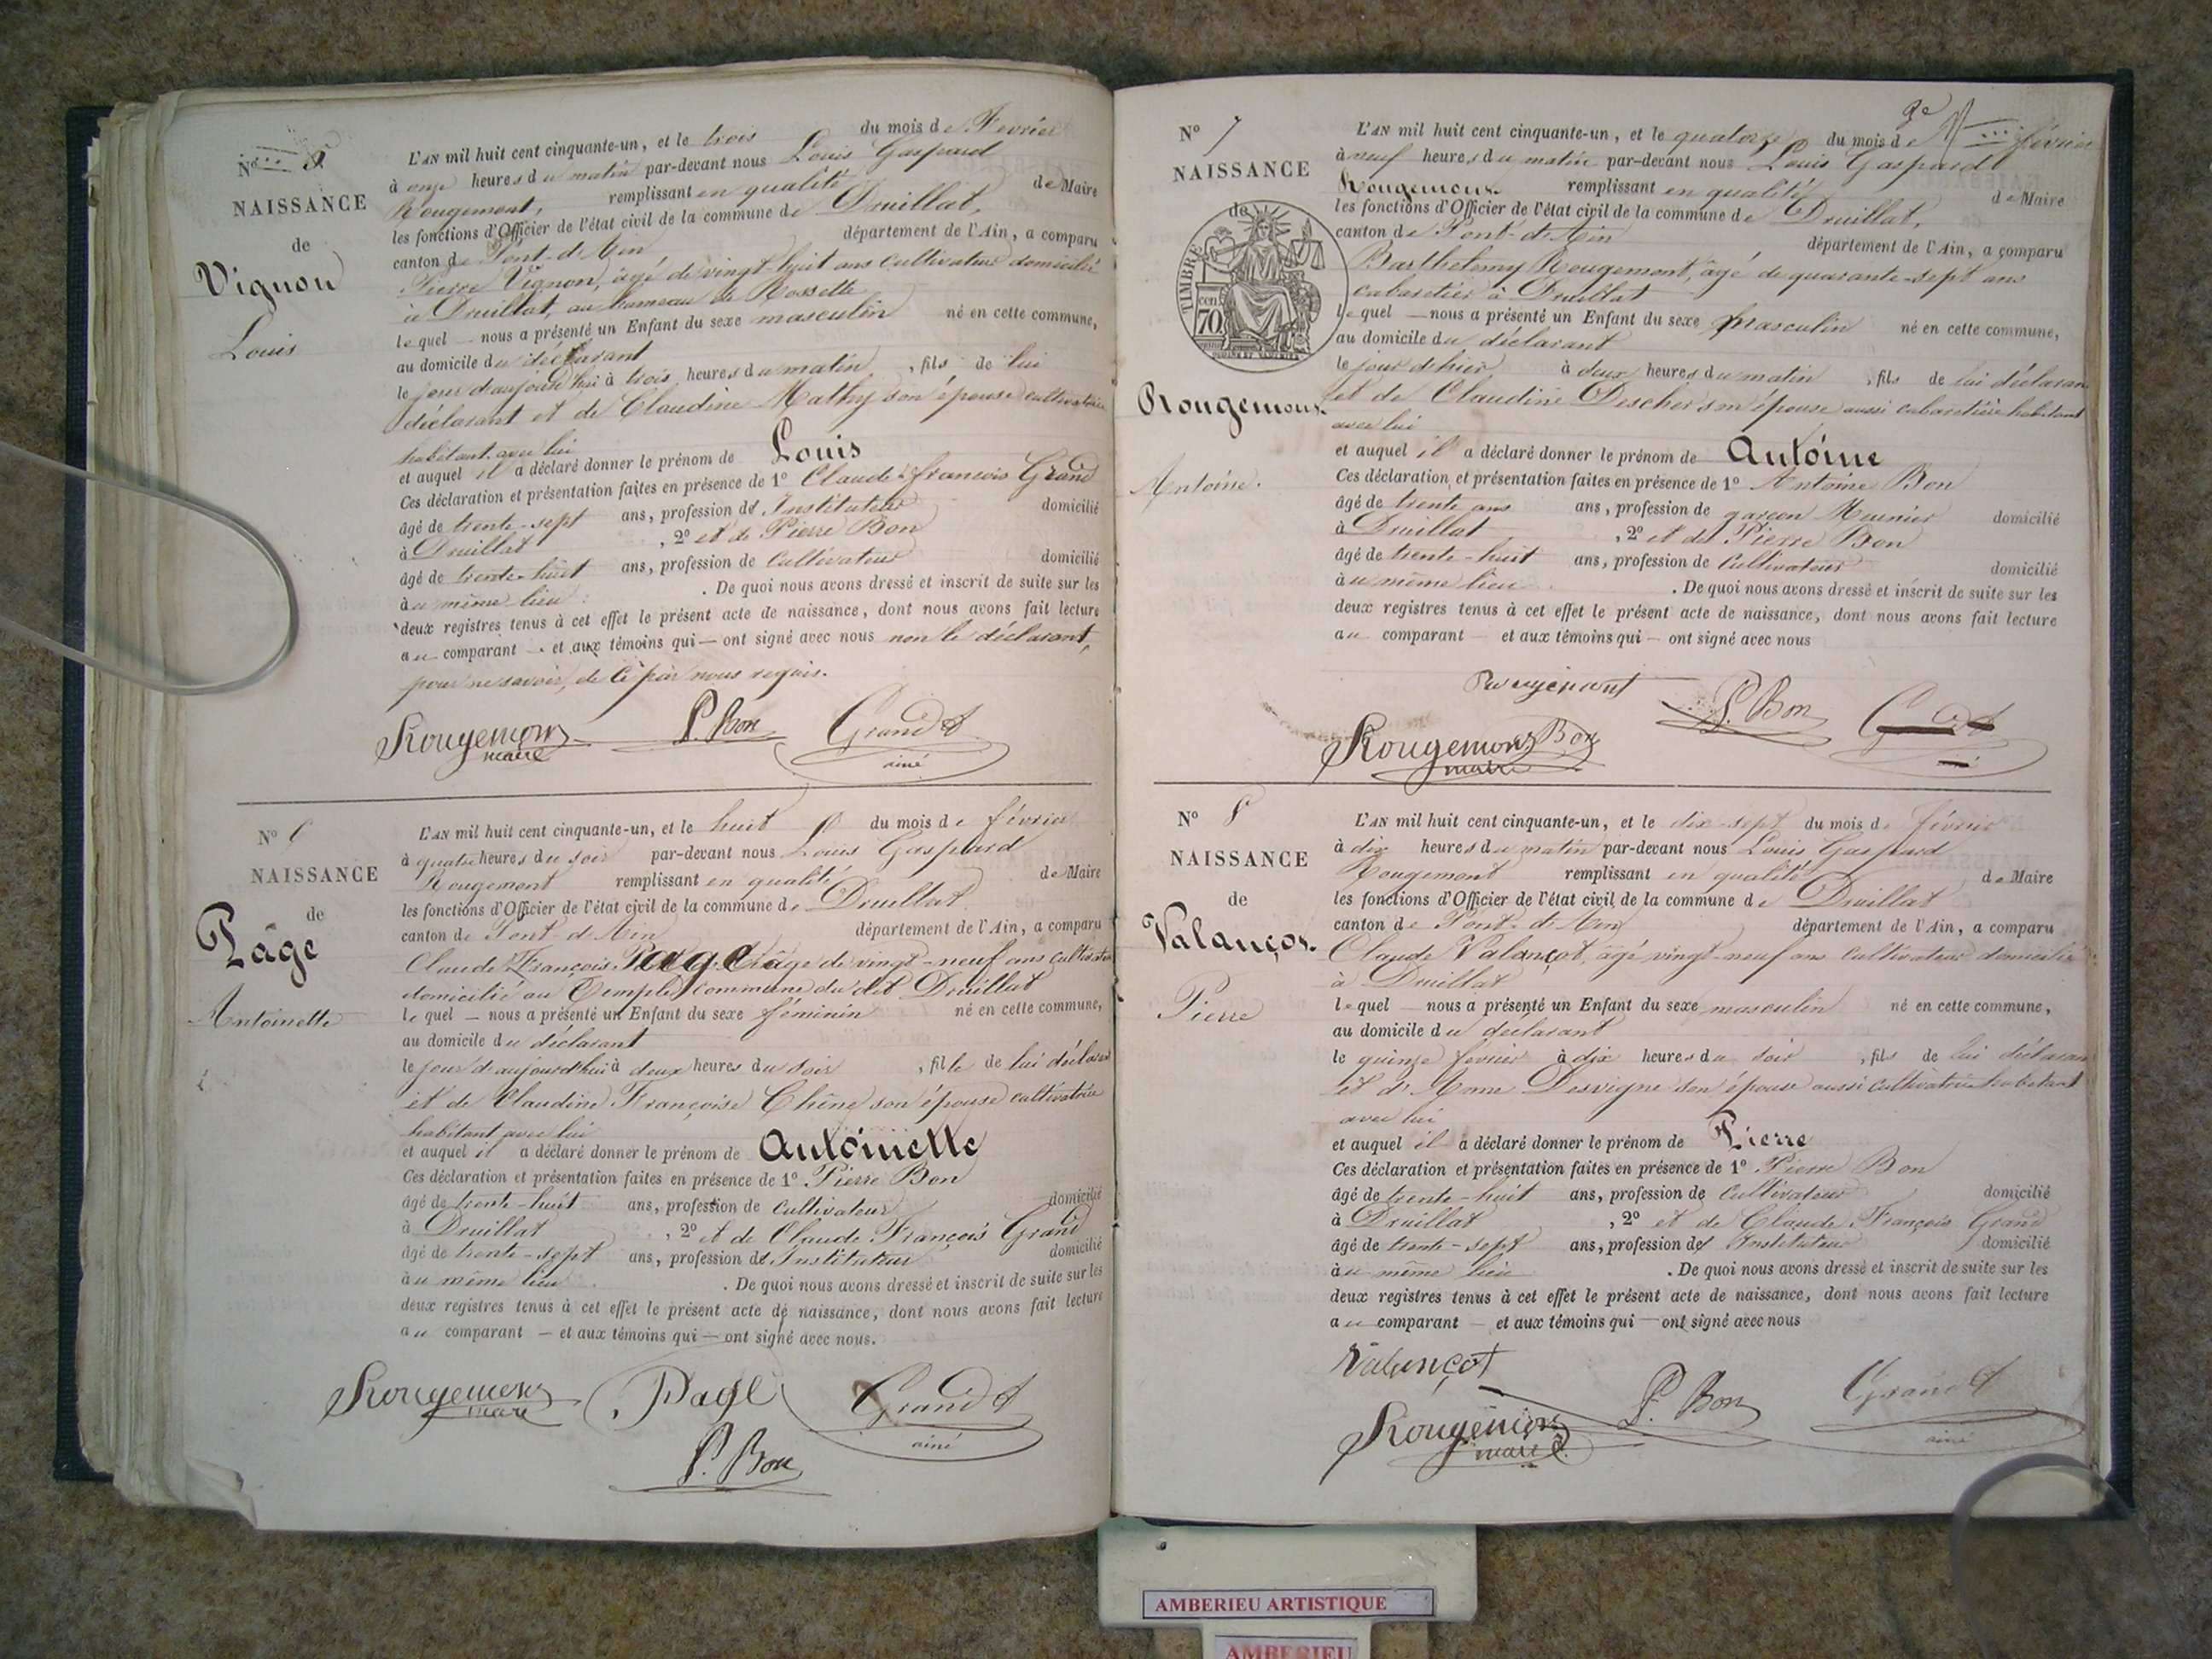 No 5
NAISSANCE
de
Vignon
Louis
L'AN mil huit cent cinquante-un, et le trois du mois de Fevrier
à onze heures du matin par-devant nous Louis Gaspard
Rougemont, remplissant en qualité de Maire
les fonctions d'Officier de l'état civil de la commune de Druillat,
canton de Pont-d'Ain département de l'Ain, a comparu
Pierre Vignon, âgé de vingt-huit ans cultivateur domicilié
à Druillat, au hameau de Rossette
lequel nous a présenté un Enfant du sexe masculin né en cette commune,
au domicile du déclarant
le jour d'aujourd'hui à trois heures du matin, fils de lui
déclarant et de Claudine Mathy son épouse cultivatrice
habitant avec lui
et auquel il a déclaré donner le prénom de Louis
Ces déclaration et présentation faites en présence de 1o Claude françois Grand
âgé de trente-sept ans, profession d'Instituteur domicilié
à Druillat, 2o et de Pierre Bon
âgé de trente-huit ans, profession de cultivateur domicilié
au même lieu. De quoi nous avons dressé et inscrit de suite sur les
deux registres tenus à cet effet le présent acte de naissance, dont nous avons fait lecture
au comparant et aux témoins qui ont signé avec nous non le déclarant,
pour ne savoir, de ce par nous requis.
Rougemont P. Bon Grand
maire ainé
No 6
NAISSANCE
de
Page
Antoinette
L'AN mil huit cent cinquante-un, et le huit du mois de février
à quatre heures du soir par-devant nous Louis Gaspard
Rougemont remplissant en qualité de Maire
les fonctions d'Officier de l'état civil de la commune de Druillat
canton de Pont-d'Ain département de l'Ain, a comparu
Claude François Page âgé de vingt-neuf ans cultivateur
domicilié au Temple commune du dit Druillat
lequel nous a présenté un Enfant du sexe féminin né en cette commune,
au domicile du déclarant
le jour d'aujourd'hui à deux heures du soir, fille de lui déclarant
et de Claudine Françoise Chêne son épouse cultivatrice
habitant avec lui
et auquel il a déclaré donner le prénom de Antoinette
Ces déclaration et présentation faites en présence de 1o Pierre Bon
âgé de trente-huit ans, profession de cultivateur domicilié
à Druillat, 2o et de Claude François Grand
âgé de trente-sept ans, profession d'Instituteur domicilié
au même lieu. De quoi nous avons dressé et inscrit de suite sur les
deux registres tenus à cet effet le présent acte de naissance, dont nous avons fait lecture
au comparant et aux témoins qui ont signé avec nous.
Rougemont Page Grand
maire ainé
P. Bon
No 7
NAISSANCE
de
TIMBRE
70
Rougemont
Antoine.
L'AN mil huit cent cinquante-un, et le quatorze du mois de février
à neuf heures du matin par-devant nous Louis Gaspard
Rougemont remplissant en qualité de Maire
les fonctions d'Officier de l'état civil de la commune de Druillat,
canton de Pont-d'Ain département de l'Ain, a comparu
Barthelemy Rougemont, âgé de quarante-sept ans
cabaretier à Druillat
lequel nous a présenté un Enfant du sexe masculin né en cette commune,
au domicile du déclarant
le jour d'hier, à deux heures du matin, fils de lui déclarant
et de Claudine Descher son épouse aussi cabaretière habitant
avec lui
et auquel il a déclaré donner le prénom de Antoine
Ces déclaration et présentation faites en présence de 1o Antoine Bon
âgé de trente ans ans, profession de garçon Meunier domicilié
à Druillat, 2o et de Pierre Bon
âgé de trente-huit ans, profession de Cultivateur domicilié
au même lieu. De quoi nous avons dressé et inscrit de suite sur les
deux registres tenus à cet effet le présent acte de naissance, dont nous avons fait lecture
au comparant et aux témoins qui ont signé avec nous
Rougemont P. Bon
Rougemont Bon
maire
No 8
NAISSANCE
de
Valançot
Pierre
L'AN mil huit cent cinquante-un, et le dix-sept du mois de février
à dix heures du matin par-devant nous Louis Gaspard
Rougemont remplissant en qualité de Maire
les fonctions d'Officier de l'état civil de la commune de Druillat
canton de Pont-d'Ain département de l'Ain, a comparu
Claude Valançot, âgé vingt-neuf ans cultivateur domicilié
à Druillat
lequel nous a présenté un Enfant du sexe masculin né en cette commune,
au domicile du déclarant
le quinze février à dix heures du soir, fils de lui déclarant
et d'Anne Desvigne son épouse aussi cultivatrice habitant
avec lui
et auquel il a déclaré donner le prénom de Pierre
Ces déclaration et présentation faites en présence de 1o Pierre Bon
âgé de trente-huit ans, profession de Cultivateur domicilié
à Druillat, 2o et de Claude François Grand
âgé de trente-sept ans, profession d'Instituteur domicilié
au même lieu. De quoi nous avons dressé et inscrit de suite sur les
deux registres tenus à cet effet le présent acte de naissance, dont nous avons fait lecture
au comparant et aux témoins qui ont signé avec nous
Valançot
Rougemont P. Bon Grand
maire ainé
AMBERIEU ARTISTIQUE
AMBERIEU